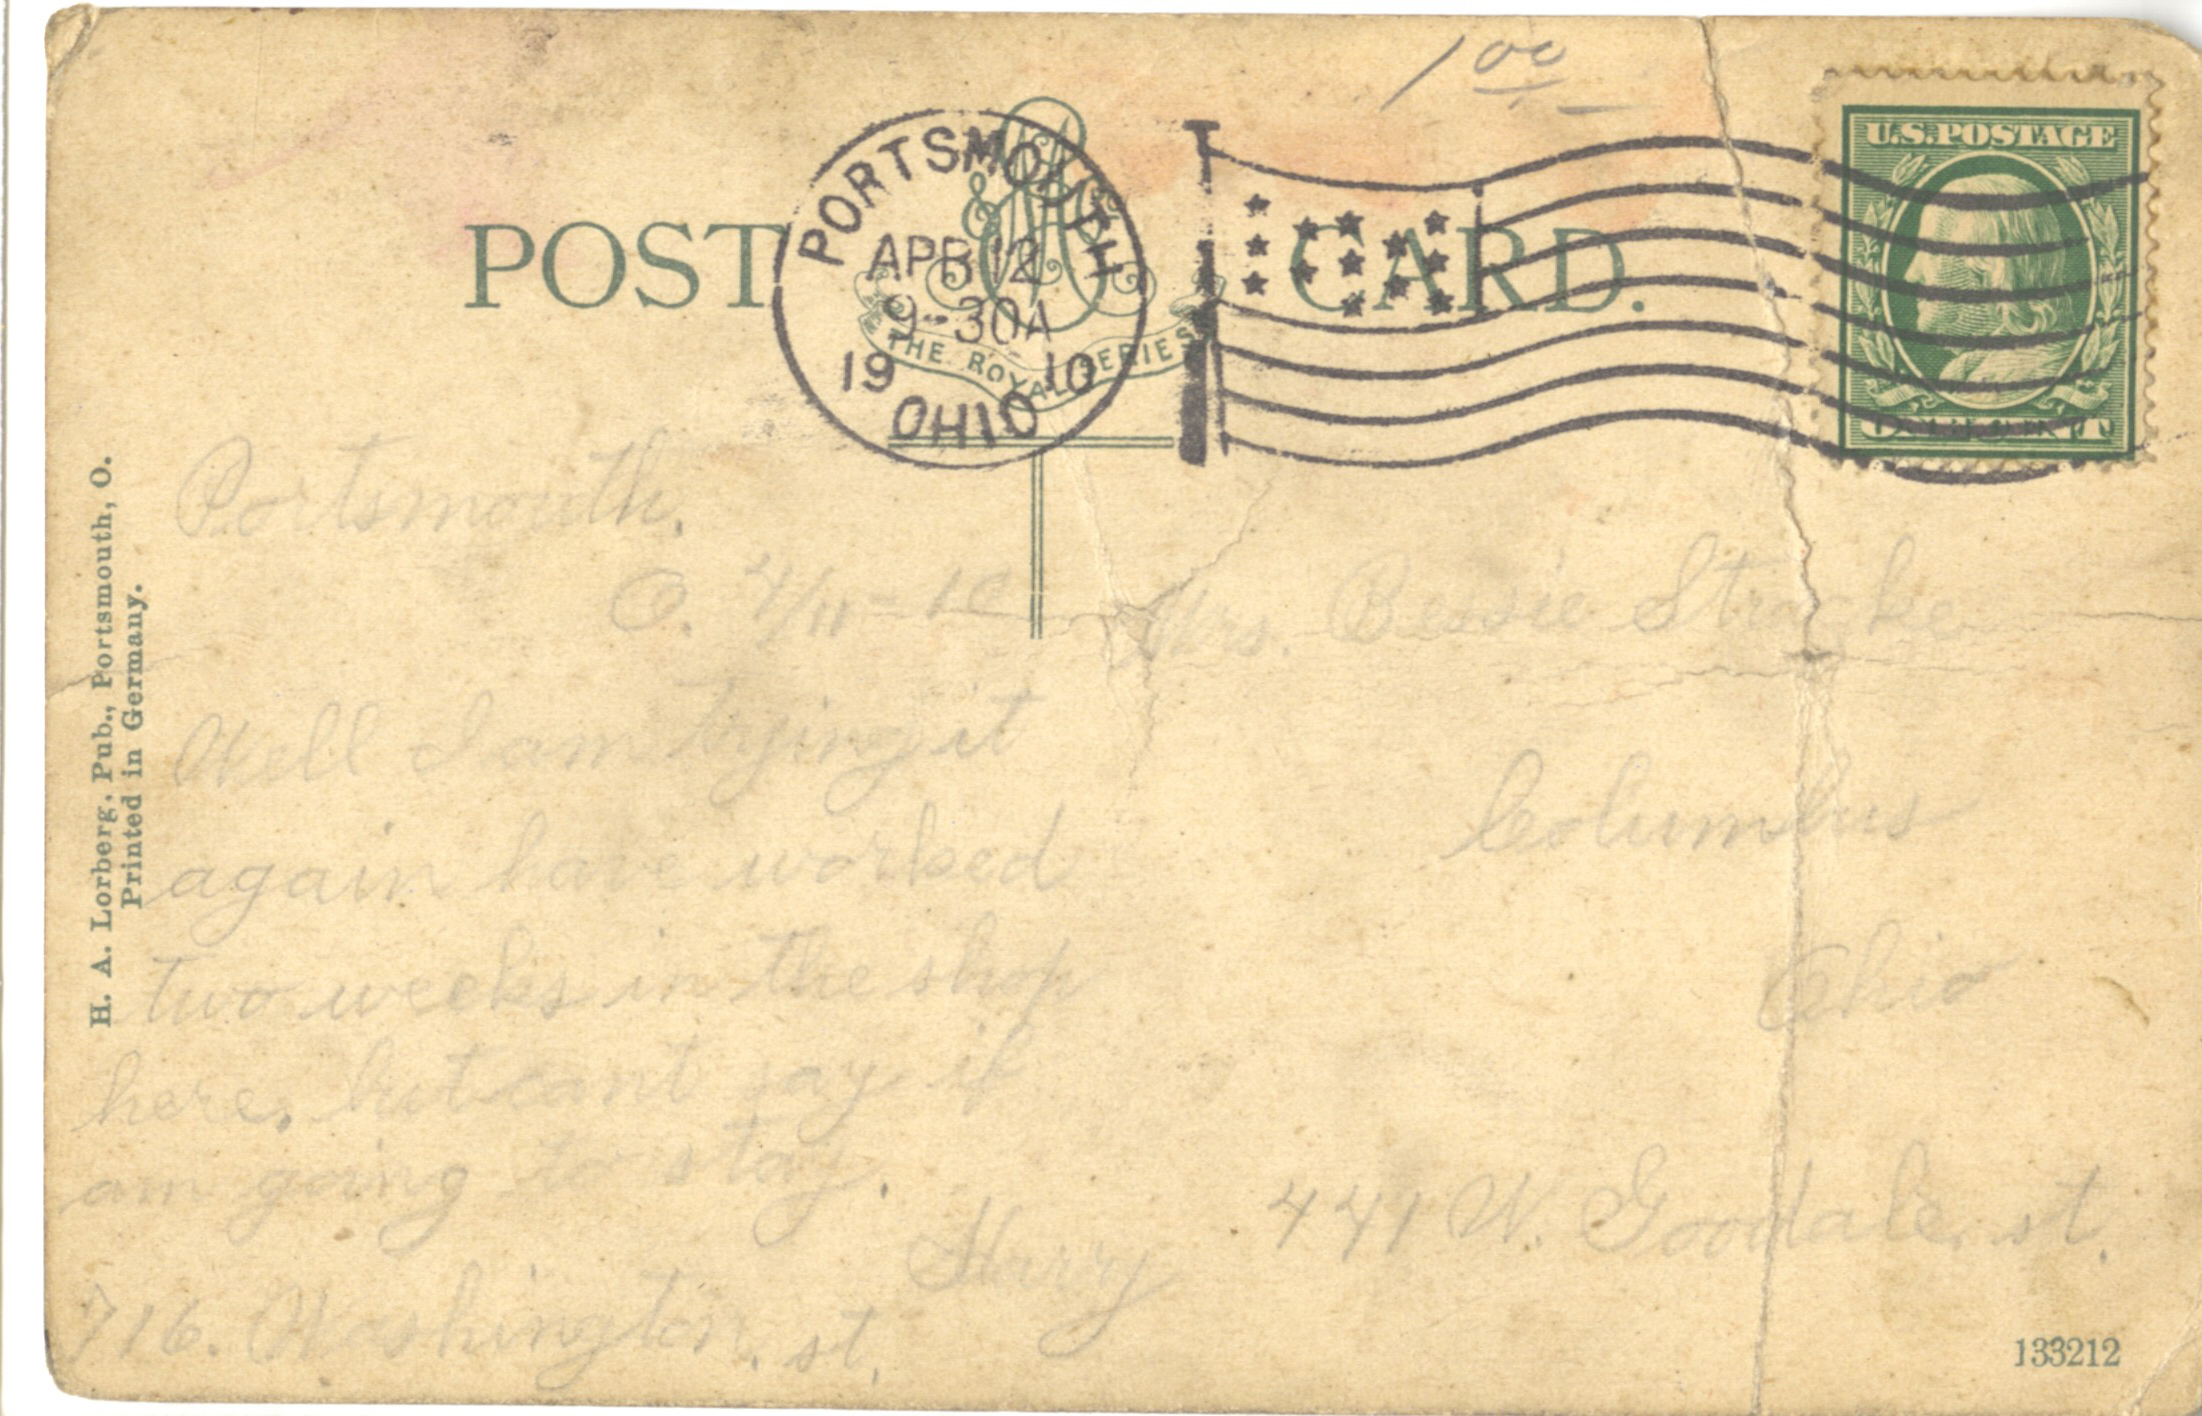 1 00
U.S.POSTAGE
POST CARD.
PORTSMOUTH
APR 12
9-30A
19 10
OHIO
THE ROYAL SERIES
H. A. Lorberg, Pub., Portsmouth, O.
Printed in Germany.
Portsmouth.
O. 4/11-10
Well I am trying it
again have worked
two weeks in the shop
here. but cant say if
am going to stay.
Harry
716. Washington. st.
Mrs. Bessie Stracke
Columbus
Ohio
441 W. Goodale. st.
133212